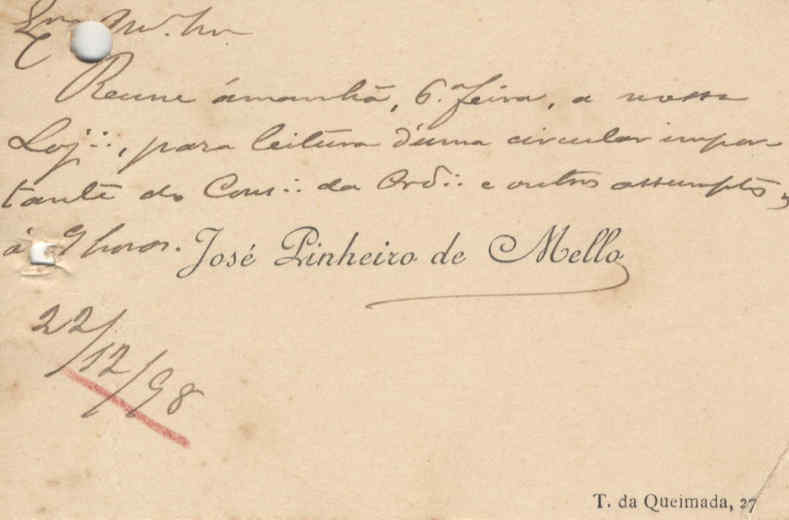 Reune ámanhã, 6.ª feira, a nossa
Loj∴, para leitura d'uma circular impor-
tante do Cons∴ da Ord∴ e outros assumptos,
ás 9 horas.
José Pinheiro de Mello
22/12/98
T. da Queimada, 27